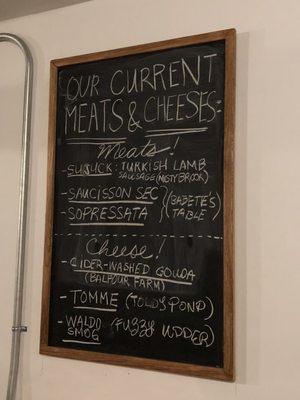 OUR CURRENT
MEATS & CHEESES:
Meats!
- SUJUCK: TURKISH LAMB
SAUSAGE (MISTY BROOK)
- SAUCISSON SEC
- SOPRESSATA
(BABETE'S
TABLE)
Cheese!
- CIDER-WASHED GOUDA
(BALFOUR FARM)
- TOMME (TODDY POND)
- WALDO
SMOG
(FUZZY UDDER)